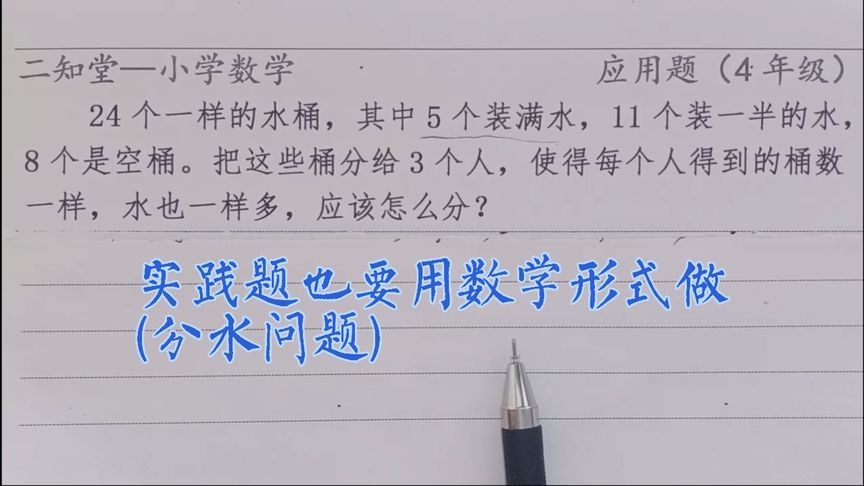 二知堂—小学数学 应用题（4 年级）
24 个一样的水桶，其中 5 个装满水，11 个装一半的水，
8 个是空桶。把这些桶分给 3 个人，使得每个人得到的桶数
一样，水也一样多，应该怎么分？
实践题也要用数学形式做
(分水问题)